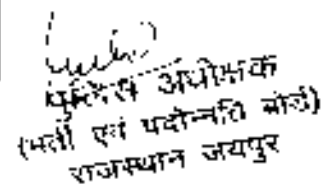 पुलिस अधीक्षक
(भर्ती एवं पदोन्नति बोर्ड)
राजस्थान जयपुर